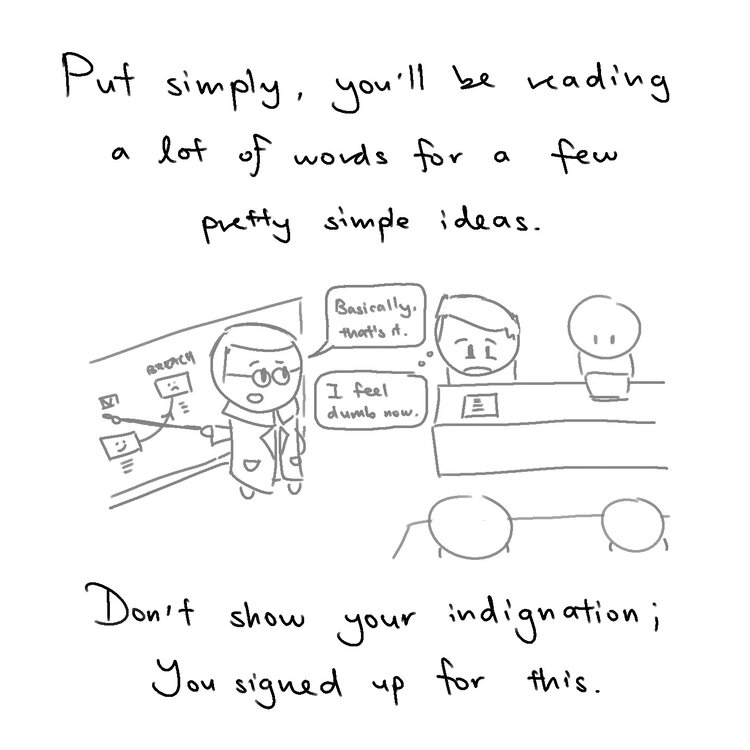 Put simply, you'll be reading
a lot of words for a few
pretty simple ideas.
BREACH
Basically,
that's it.
I feel
dumb now.
Don't show your indignation;
You signed up for this.